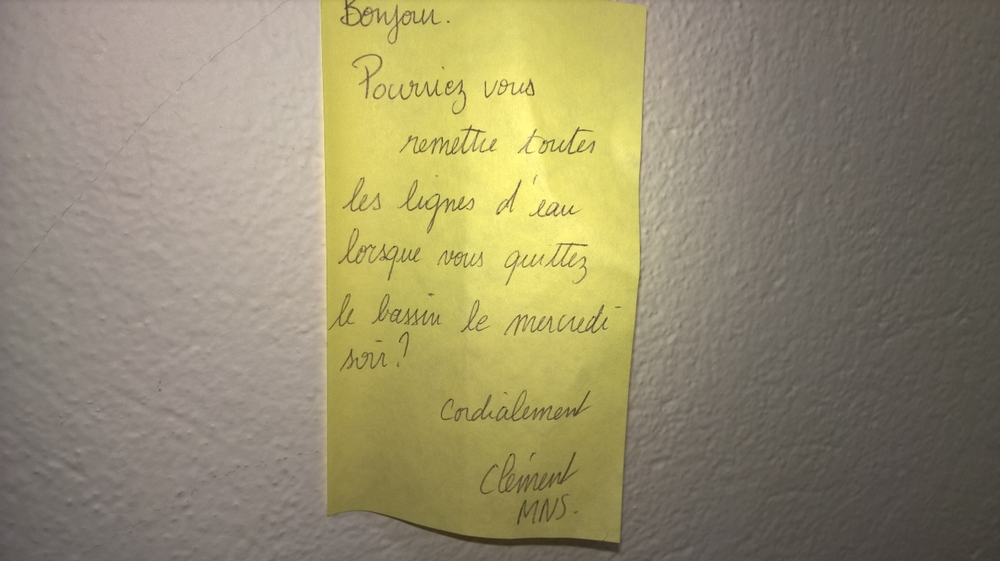 Bonjour.
Pourriez vous
remettre toutes
les lignes d'eau
lorsque vous quittez
le bassin le mercredi
soir?
Cordialement
Clément
MNS.